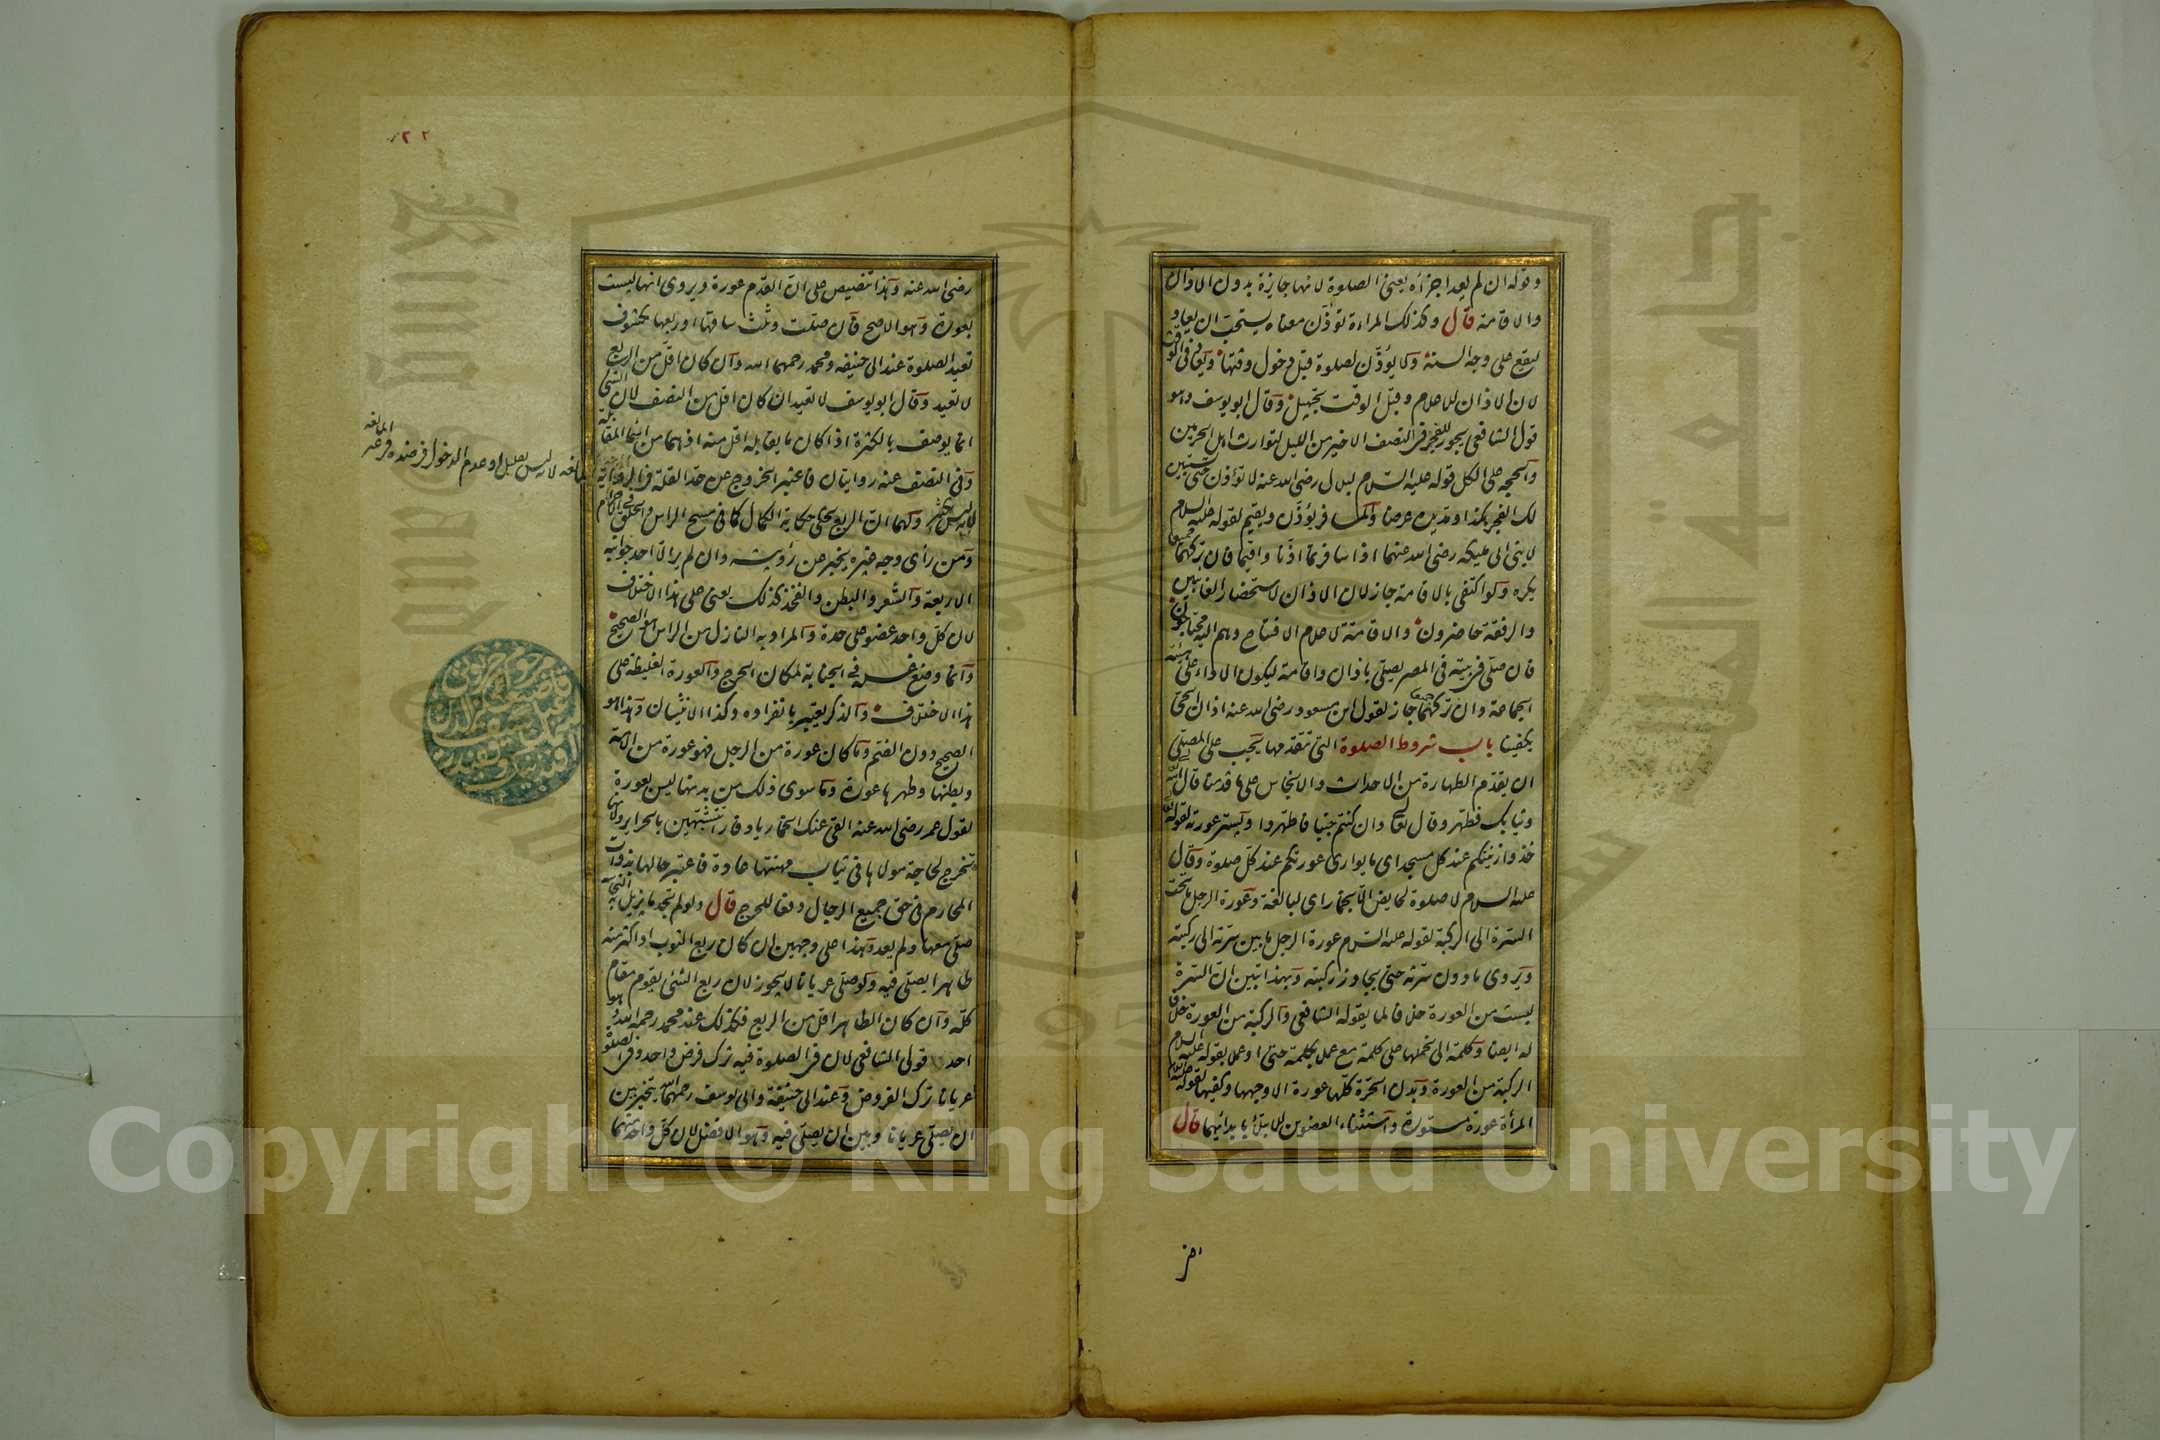 وقوله ان لم يعد اجزأه يعنى الصلوة لانها جايزة بدون الاذان
والاقامة قال وكذلك المراءة تؤذن معناه يستحب ان يعاد
ليقع على وجه السنة ولا يؤذن لصلوة قبل دخول وقتها ويعاد فى الوقت
لان الاذان للاعلام وقبل الوقت تجهيل وقال ابو يوسف وهو
قول الشافعى يجوز للفجر فى النصف الاخير من الليل لتوارث اهل الحرمين
والحجه على الكل قوله عليه السلام لبلال رضى الله عنه لا تؤذن حتى يستبين
لك الفجر هكذا ومد يده عرضا والمسافر يؤذن ويقيم لقوله عليه السلام
لابنى ابى مليكه رضى الله عنهما اذا سافرتما اذنا واقيما فان تركهما جميعا
يكره ولو اكتفى بالاقامة جاز لان الاذان لاستحضار الغايبين
والرفقة حاضرون والاقامة لاعلام الافتتاح وهم اليه محتاجون
فان صلى فى بيته فى المصر يصلى باذان واقامة ليكون الاداء على هيئة
الجماعة وان تركهما جميعا جاز لقول ابن مسعود رضى الله عنه اذان الحى
يكفينا باب شروط الصلوة التى تتقدمها يجب على المصلى
ان يقدم الطهارة من الاحداث والانجاس على ما قدمنا قال الله
وثيابك فطهر وقال تعالى وان كنتم جنبا فاطهروا ويستر عورته لقوله
خذوا زينتكم عند كل مسجد اى ما يوارى عورتكم عند كل صلوة وقال
عليه السلام لا صلوة لحايض الا بخمار اى لبالغة وعورة الرجل ما تحت
السرة الى الركبة لقوله عليه السلام عورة الرجل ما بين سرته الى ركبته
ويروى ما دون سرته حتى يجاوز ركبته وبهذا تبين ان السرة
ليست من العورة خلافا لما يقوله الشافعى والركبة من العورة خلافا
له ايضا وكلمة الى نحملها على كلمة مع عملا بكلمة حتى او عملا بقوله عليه السلام
الركبة من العورة وبدن الحرة كلها عورة الا وجهها وكفيها لقوله عليه السلام
المرأة عورة مستورة واستثناء العضوين للابتلاء بابدائهما قال
رضى الله عنه وهذا تنصيص على ان القدم عورة ويروى انها ليست
بعورة وهو الاصح فان صلت وثلث ساقها او ربعها مكشوف
تعيد الصلوة عند ابى حنيفه ومحمد رحمهما الله وان كان اقل من الربع
لا تعيد وقال ابو يوسف لا تعيد ان كان اقل من النصف لان الشئ
انما يوصف بالكثرة اذا كان ما يقابله اقل منه اذ هما من اسماء المقابلة
وفى النصف عنه روايتان فاعتبر الخروج عن حد القلة
ولهما ان الربع يحكى حكاية الكمال كما فى مسح الراس والحلق فى الاحرام
ومن رأى وجه غيره يخبر عن رؤيته وان لم ير الا احد جوانبه
الاربعة والشعر والبطن والفخذ كذلك يعنى على هذا الاختلاف
لان كل واحد عضو على حدة والمراد به النازل من الراس هو الصحيح
وانما وضع غسله فى الجنابة لمكان الحرج والعورة الغليظة على
هذا الاختلاف والذكر يعتبر بانفراده وكذا الانثيان وهذا هو
الصحيح دون الضم وما كان عورة من الرجل فهو عورة من الامة
وبطنها وظهرها عورة وما سوى ذلك من بدنها ليس بعورة
لقول عمر رضى الله عنه القى عنك الخمار يا دفار اتتشبهين بالحراير ولانها
تخرج لحاجة مولاها فى ثياب مهنتها عادة فاعتبر حالها بذوات
المحارم فى حق جميع الرجال دفعا للحرج قال ولو لم يجد ما يزيل النجاسة
صلى معها ولم يعد وهذا على وجهين ان كان ربع الثوب او اكثر منه
طاهرا يصلى فيه ولو صلى عريانا لا يجوز لان ربع الشئ يقوم مقام
كله وان كان الطاهر اقل من الربع فكذلك عند محمد رحمه الله وهو
احد قولى الشافعى لان فى الصلوة فيه ترك فرض واحد وفى الصلوة
عريانا ترك الفروض وعند ابى حنيفة وابى يوسف رحمهما الله يتخير بين
ان يصلى عريانا وبين ان يصلى فيه وهو الافضل لان كل واحد منهما
٢٢
Copyright © King Saud University